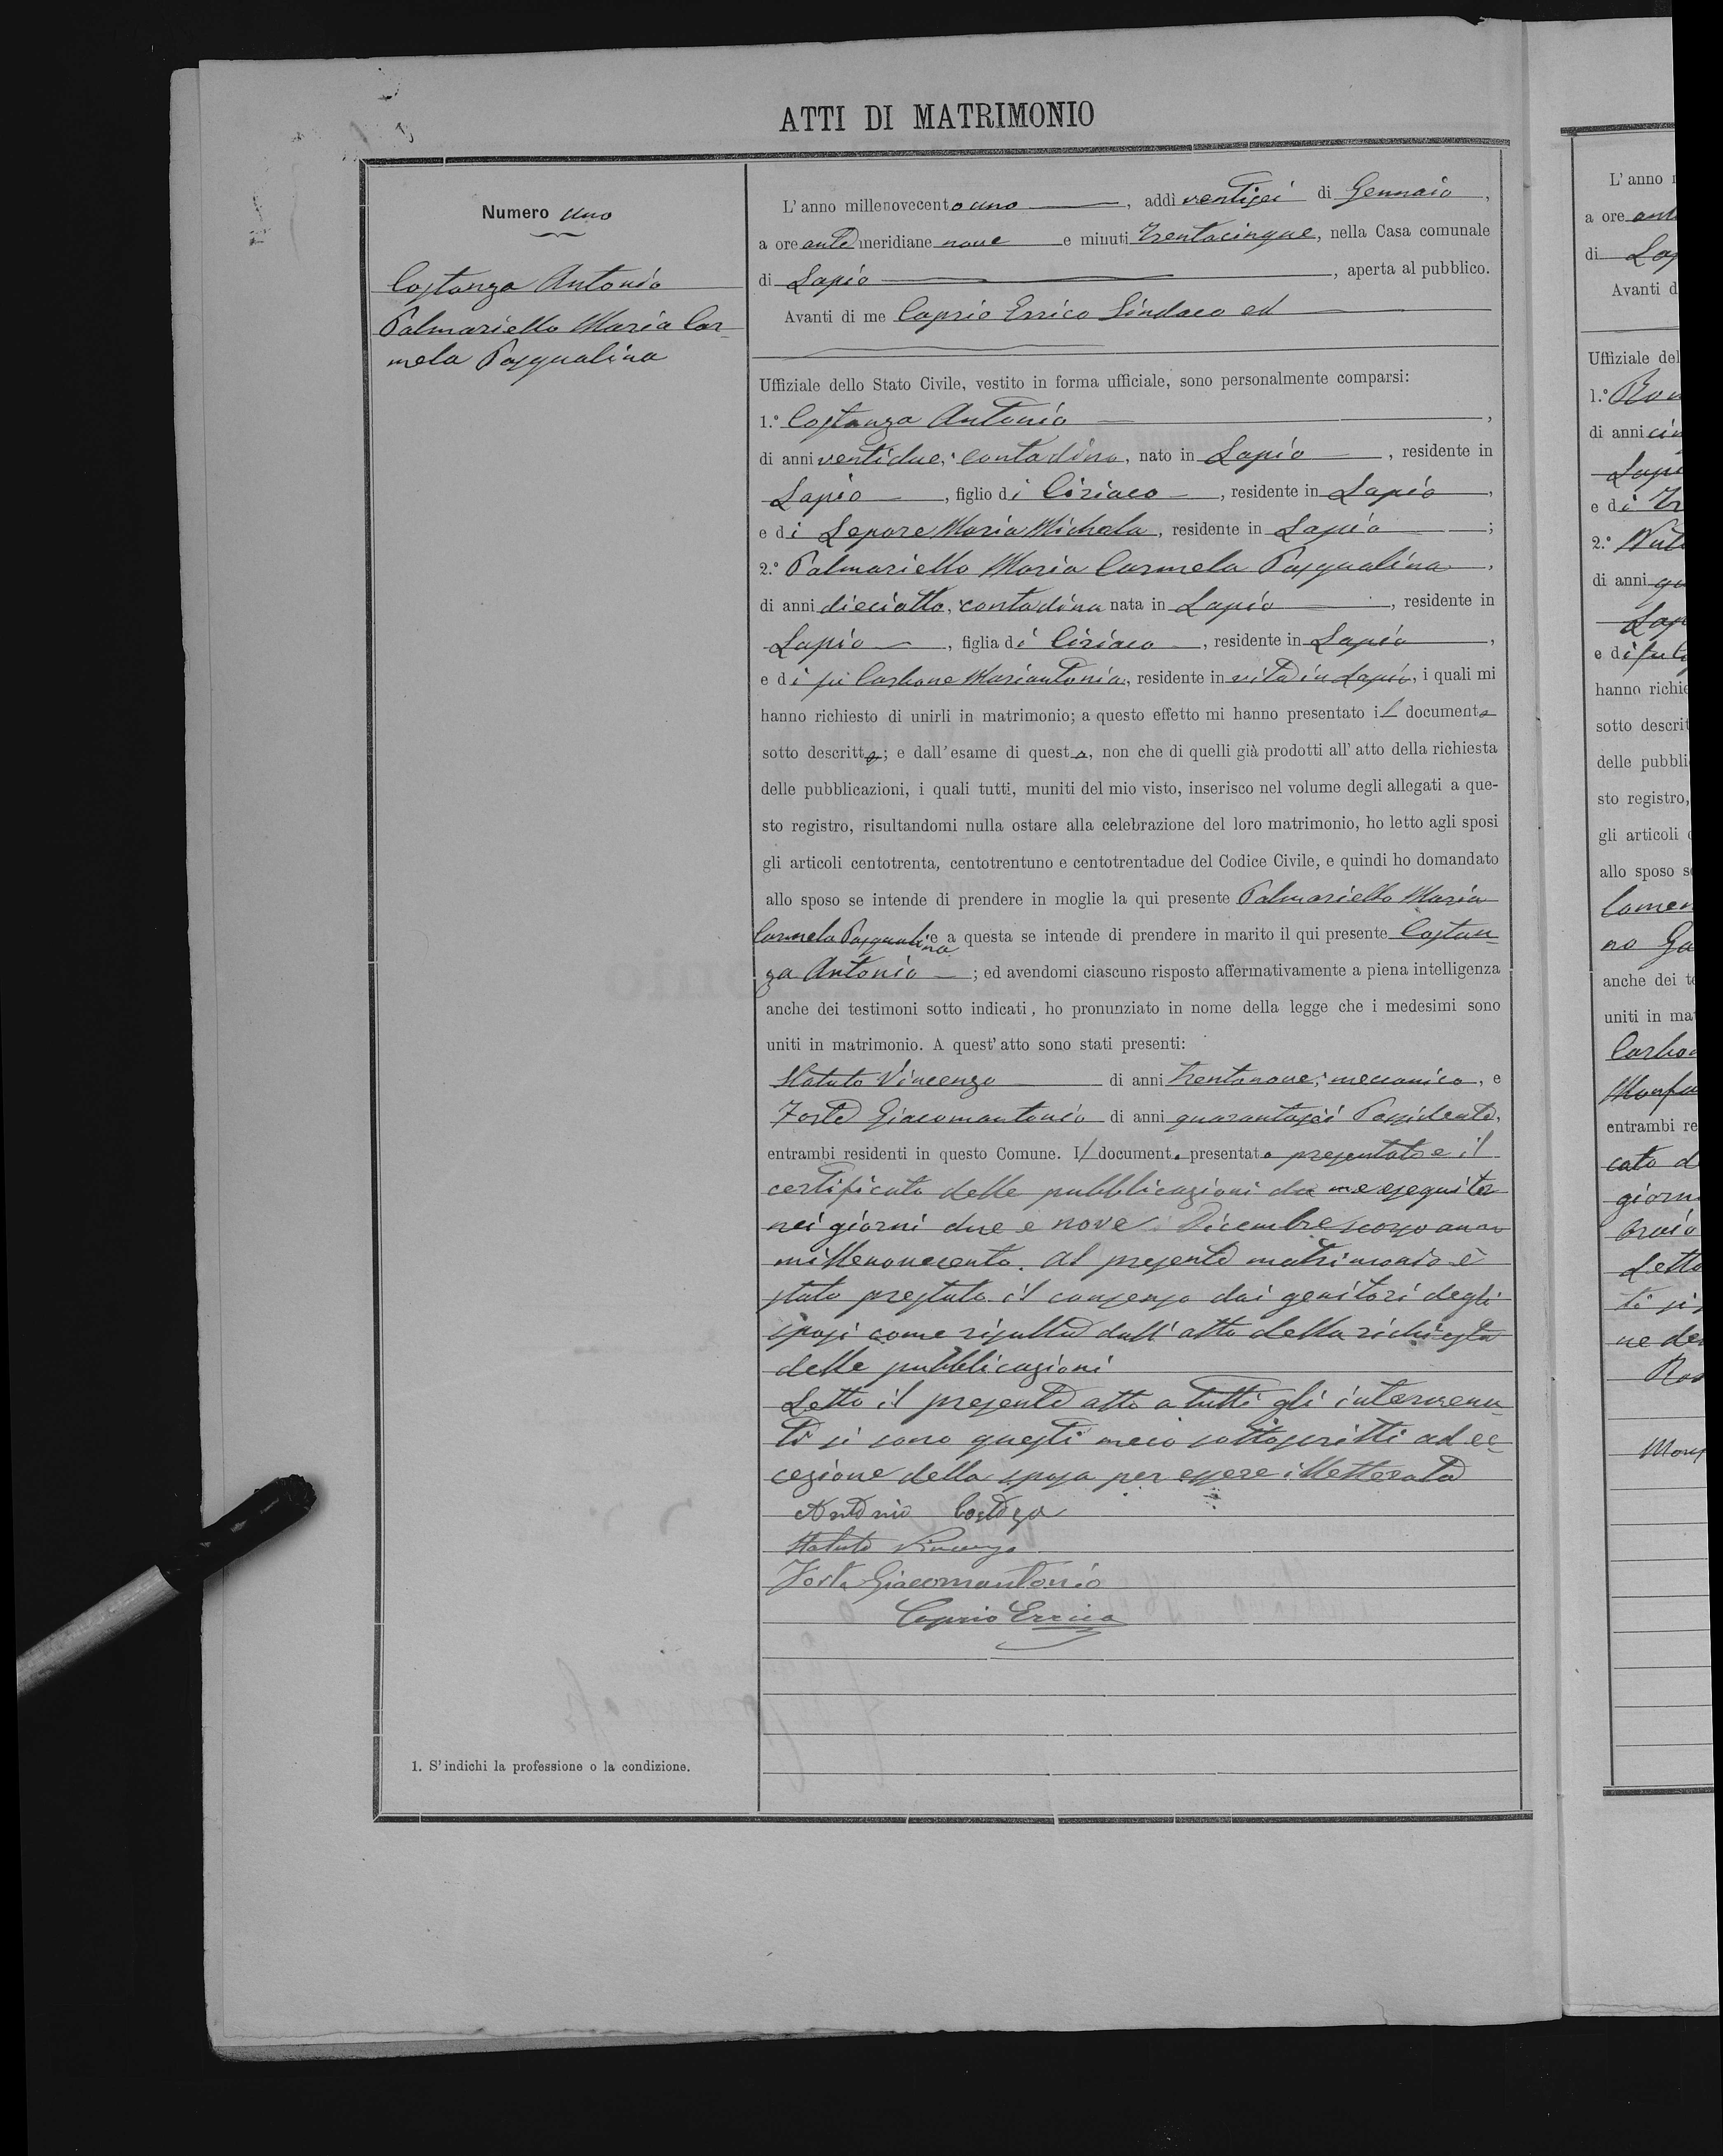 ATTI DI MATRIMONIO
Numero uno
Costanza Antonio
Palmariello Maria Car-
mela Pasqualina
L'anno millenovecento uno, addì ventisei di Gennaio,
a ore antemeridiane nove e minuti trentacinque, nella Casa comunale
di Lapio, aperta al pubblico.
Avanti di me Caprio Errico Sindaco ed
Uffiziale dello Stato Civile, vestito in forma ufficiale, sono personalmente comparsi:
1.° Costanza Antonio,
di anni ventidue, contadino, nato in Lapio, residente in
Lapio, figlio di Ciriaco, residente in Lapio,
e di Lepore Maria Michela, residente in Lapio;
2.° Palmariello Maria Carmela Pasqualina,
di anni dieciotto, contadina nata in Lapio, residente in
Lapio, figlia di Ciriaco, residente in Lapio,
e di fu Carbone Mariantonia, residente in vita in Lapio, i quali mi
hanno richiesto di unirli in matrimonio; a questo effetto mi hanno presentato il documento
sotto descritto; e dall'esame di questo, non che di quelli già prodotti all'atto della richiesta
delle pubblicazioni, i quali tutti, muniti del mio visto, inserisco nel volume degli allegati a que-
sto registro, risultandomi nulla ostare alla celebrazione del loro matrimonio, ho letto agli sposi
gli articoli centotrenta, centotrentuno e centotrentadue del Codice Civile, e quindi ho domandato
allo sposo se intende di prendere in moglie la qui presente Palmariello Maria
Carmela Pasqualina e a questa se intende di prendere in marito il qui presente Costan-
za Antonio; ed avendomi ciascuno risposto affermativamente a piena intelligenza
anche dei testimoni sotto indicati, ho pronunziato in nome della legge che i medesimi sono
uniti in matrimonio. A quest'atto sono stati presenti:
Statuto Vincenzo di anni trentanove, meccanico, e
Forte Giacomantonio di anni quarantasei Possidente,
entrambi residenti in questo Comune. Il documento presentato presentato è il
certificato delle pubblicazioni da me eseguite
nei giorni due e nove Dicembre scorso anno
millenovecento. Al presente matrimonio è
stato prestato il consenso dai genitori degli
sposi come risulta dall'atto della richiesta
delle pubblicazioni
Letto il presente atto a tutti gli intervenu-
ti si sono questi meco sottoscritti ad ec-
cezione della sposa per essere illetterata
Antonio
Statuto Vincenzo
Forte Giacomantonio
Caprio Errico
1. S'indichi la professione o la condizione.
L'anno
a ore
di
Avanti d
Uffiziale del
1.°
di anni
e di
2.°
di anni
e di fu
hanno richie
sotto descrit
delle pubbli
sto registro,
gli articoli
allo sposo s
no
anche dei te
uniti in ma
entrambi re
cato d
giorn